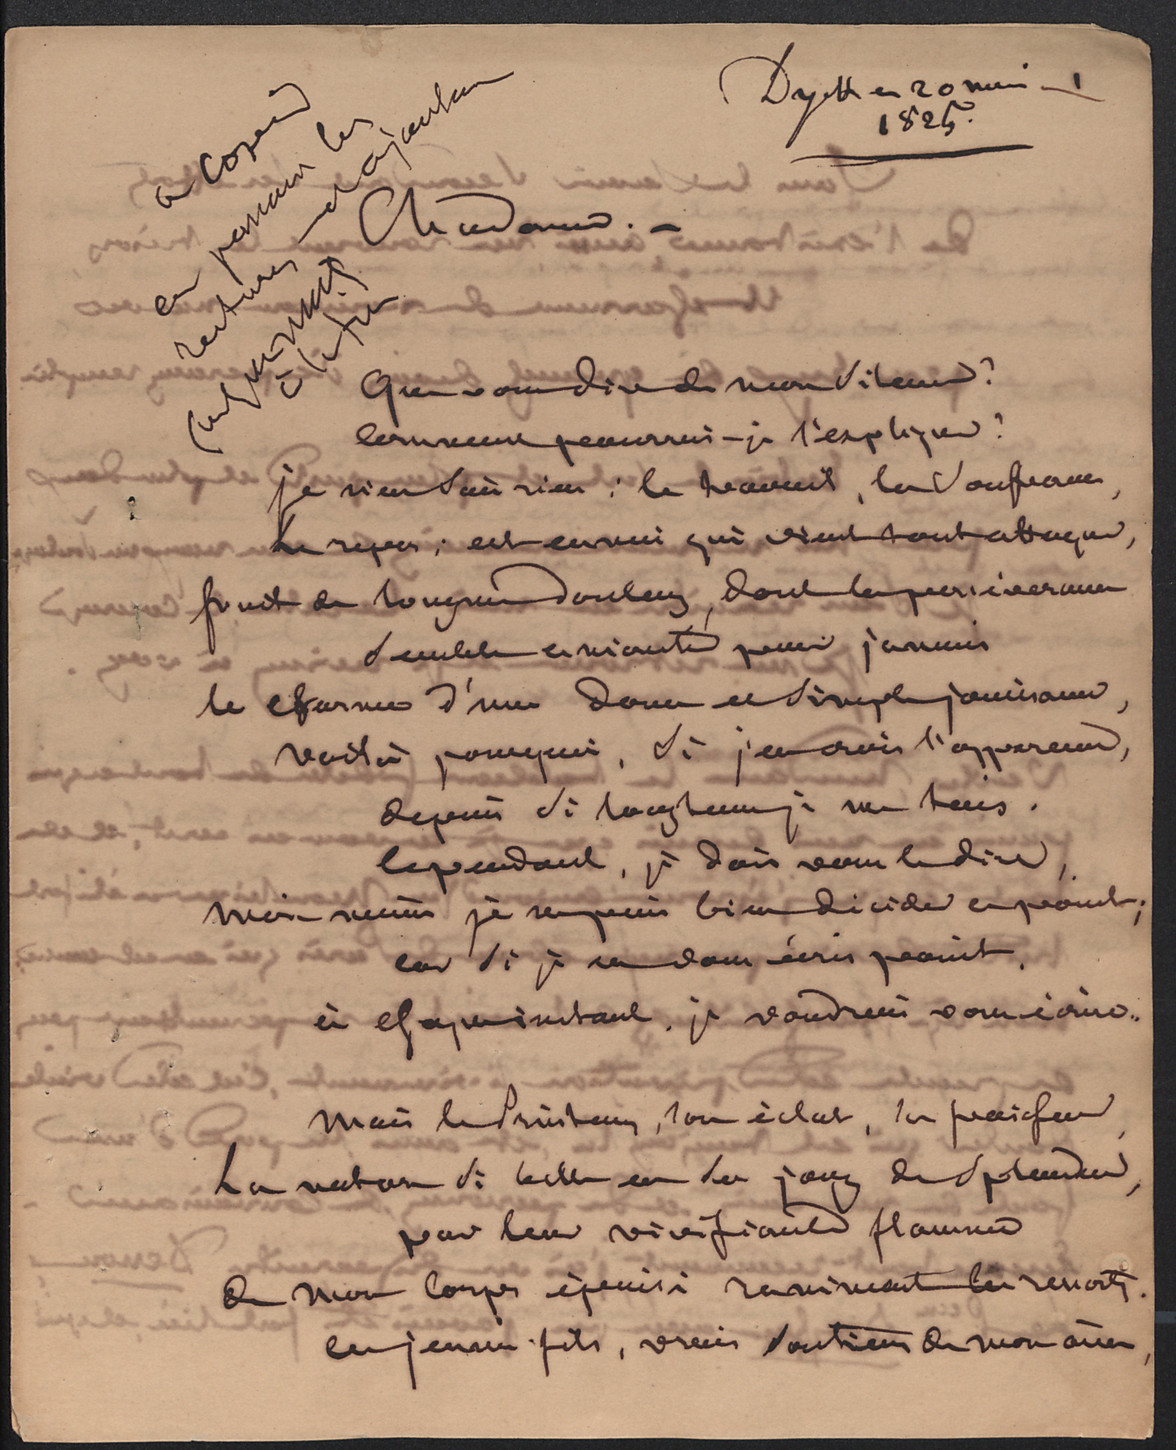 à copier
en passant les
ratures et ajoutant
à la fin
Dyck en 20 mai
1825.
Chadame.
Que vous dire de mon silence?
Comment pourrai-je l'expliquer?
je n'en sais rien : le travail, la souffrance,
Le repos ; cet ennui qui vient tout attaquer,
fruit de longues douleurs, dont la persévérance
semble anéantir pour jamais
le charme d'une douce et simple jouissance,
voilà pourquoi, si j'en crois l'apparence,
depuis si longtems je me tais.
Cependant, je dois vous le dire,
Mais je ne puis bien décider ce point ;
car si je ne vous écris point,
à chaque instant, je voudrais vous écrire..
Mais le Printems, son éclat, sa fraicheur,
La nature si belle en ses jours de splendeur,
par leur vivifiante flamme
de mon corps épuisé raniment les ressorts.
les jeunes fils, vrais soutiens de mon âme,